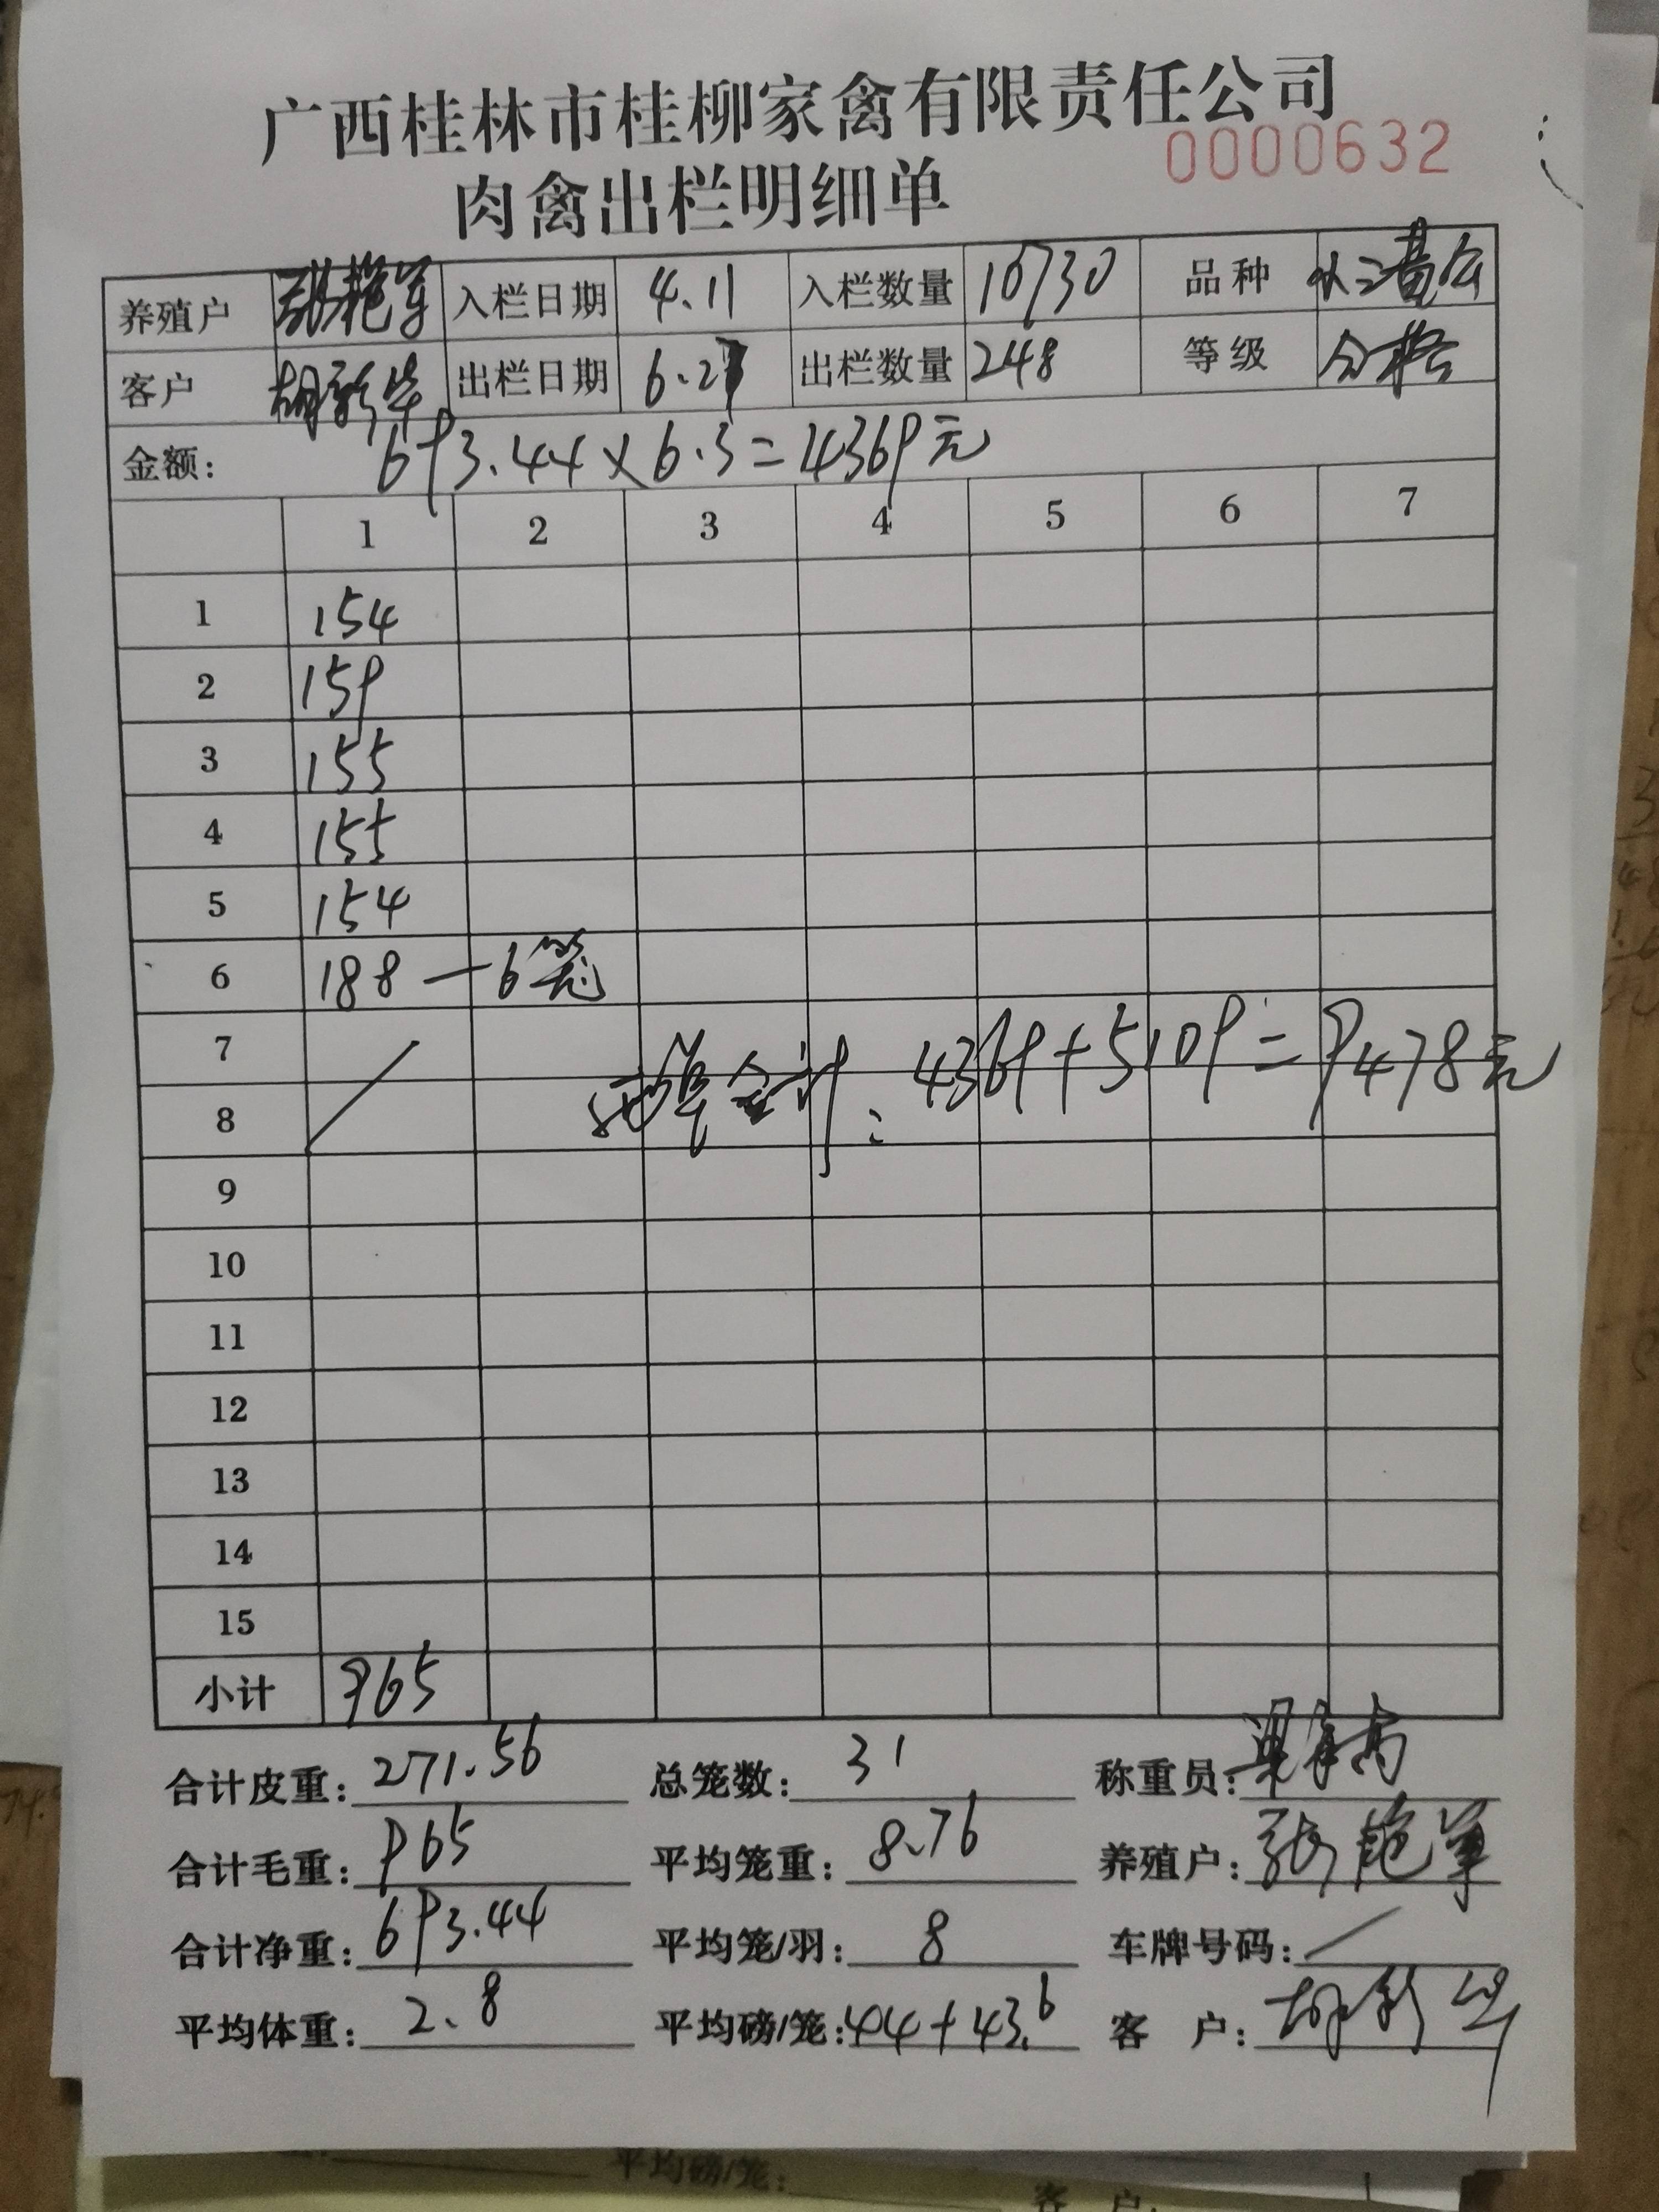 广西桂林市桂柳家禽有限责任公司
0000632
肉禽出栏明细单
养殖户 张艳军 入栏日期 4.11 入栏数量 10730 品种
客户 出栏日期 6.2 出栏数量 248 等级 合格
金额: 693.44×6.3=4369元
1 2 3 4 5 6 7
1 154
2 159
3 155
4 155
5 154
6 188—6笼
7
两单合计: 4369+5109=9478元
8
9
10
11
12
13
14
15
小计 965
合计皮重: 271.56 总笼数: 31 称重员:
合计毛重: 965 平均笼重: 8.76 养殖户: 张艳军
合计净重: 693.44 平均笼/羽: 8 车牌号码: /
平均体重: 2.8 平均磅/笼: 44+43.6 客 户:
平均磅/笼:
客 户: